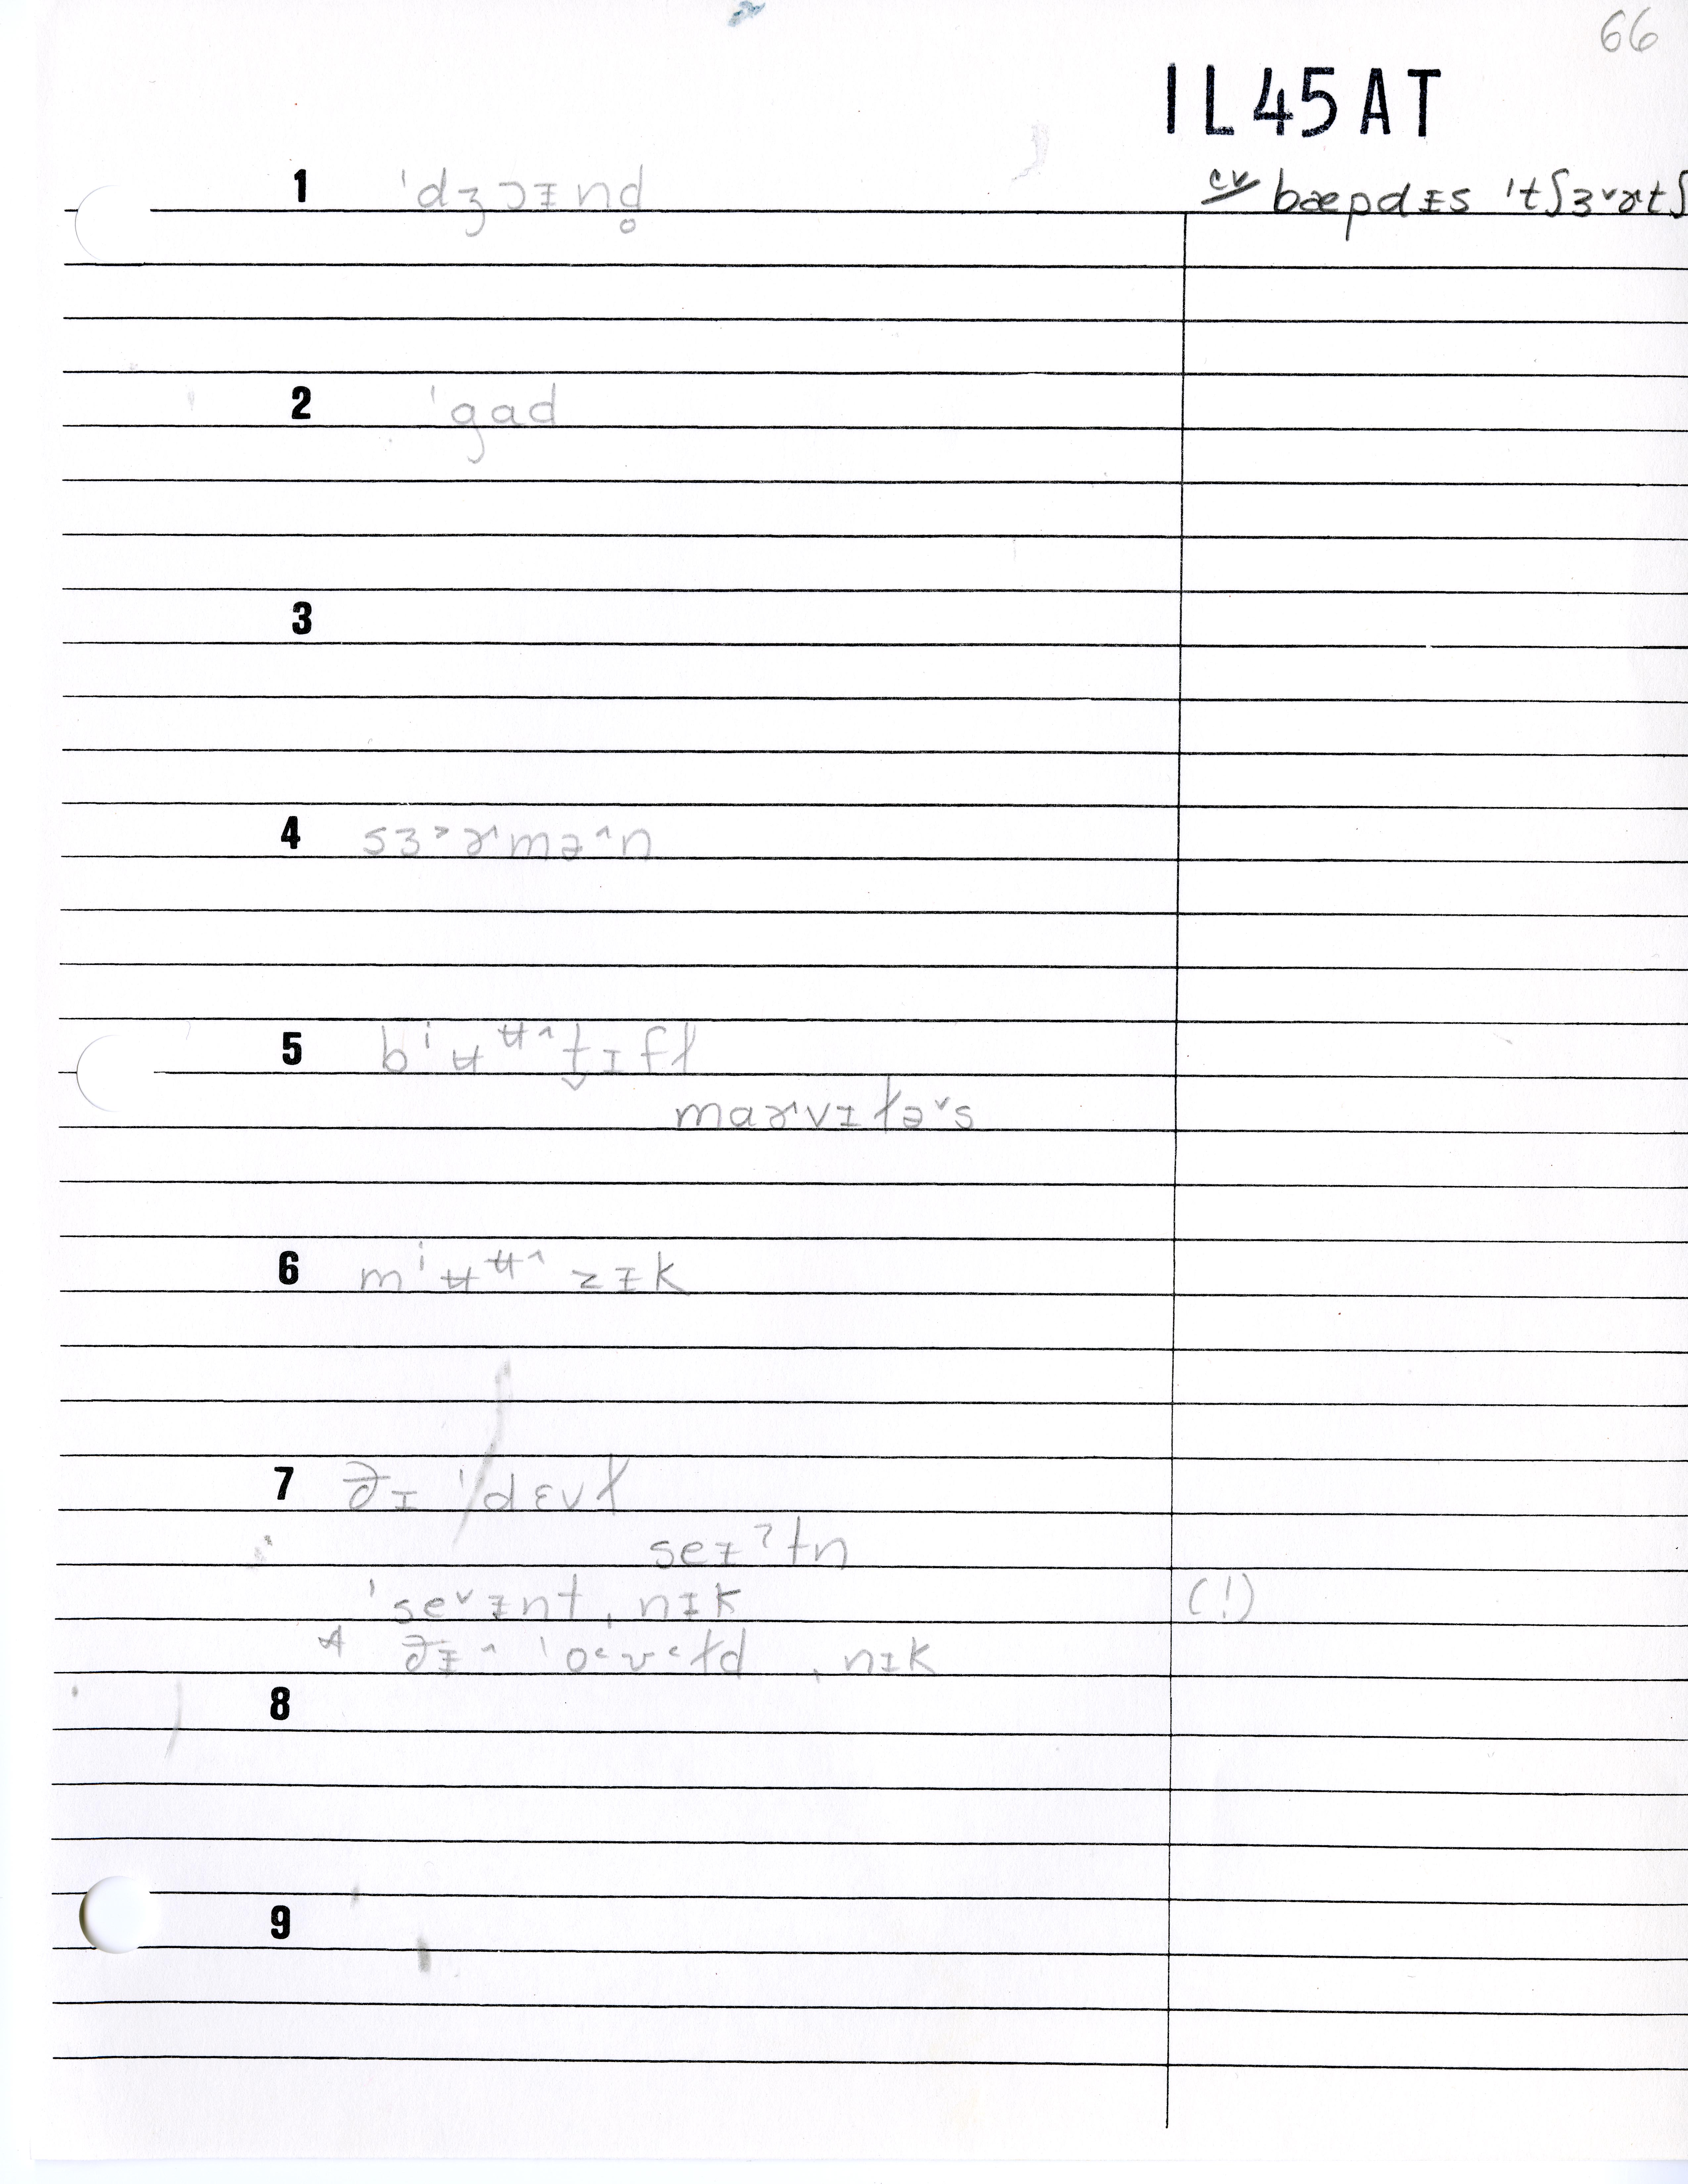 66
IL45AT
1 ˈdʒɔɪnd̥
cv bæpdɪs ˈtʃɜ˅ɚtʃ
2 ˈgɑd
3
4 sɜ˃ɚmə˄n
5 bⁱʉᵾ˄t̬ɪfɫ
mɑɚvɪɫə˅s
6 mⁱʉᵾ˄zɪk
7 ðɪ ˈdɛvɫ
seɪʔtn
ˈse˅ɪntˌnɪk (!)
ðɪ˄ ˈo˂ʊ˂ɫd ˌnɪk
8
9